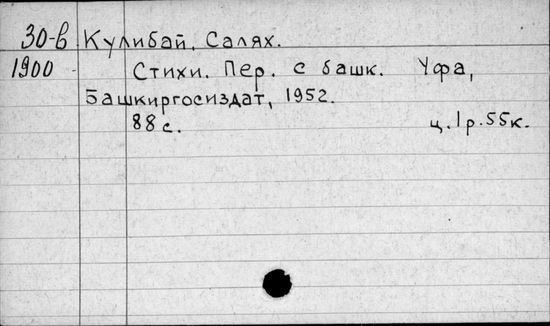 30-в Кулибай, Салях.
1900 Стихи. Пер. с башк. Уфа,
Башкиргосиздат, 1952.
88 с. ц. 1 р. 55 к.